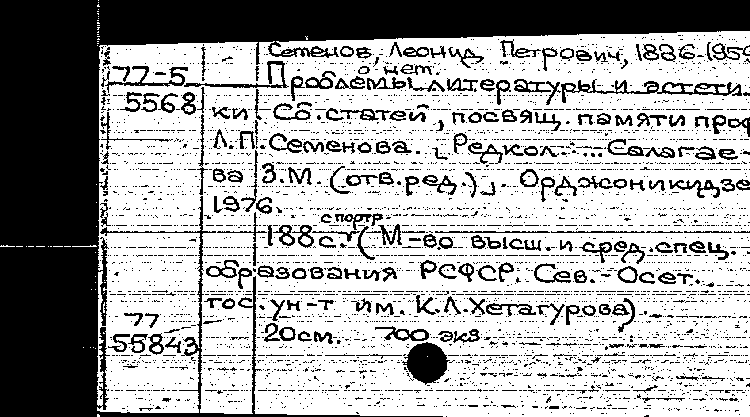 Семенов, Леонид Петрович, 1886-1959
о нем.
77-5
5568
Проблемы литературы и эстети
ки. Сб. статей, посвящ. памяти проф
Л.П. Семенова. [Редкол.: ... Салагае-
ва З.М. (отв. ред.)]. Орджоникидзе
1976.
188 с. с портр. (М-во высш. и сред. спец.
образования РСФСР. Сев.-Осет.
гос. ун-т им. К.Л. Хетагурова).
20 см. 700 экз.
77
55843